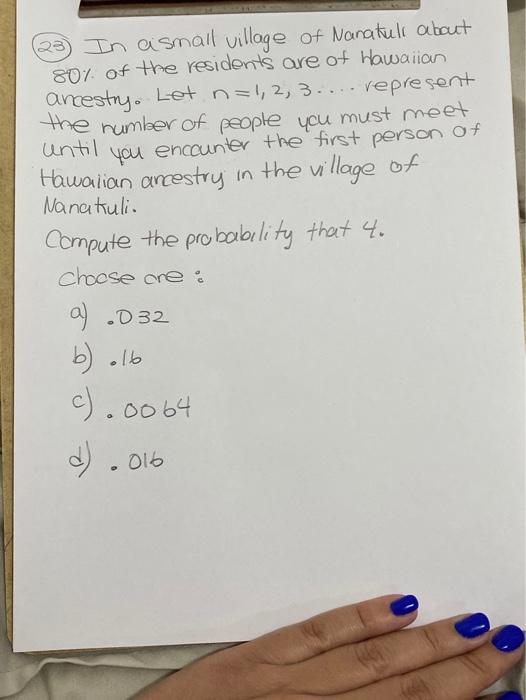 23 In a small village of Nanatuli about
80% of the residents are of Hawaiian
ancestry. Let n = 1, 2, 3.... represent
the number of people you must meet
until you encounter the first person of
Hawaiian ancestry in the village of
Nanatuli.
Compute the probability that 4.
Choose one:
a) .032
b) .16
c) .0064
d) .016